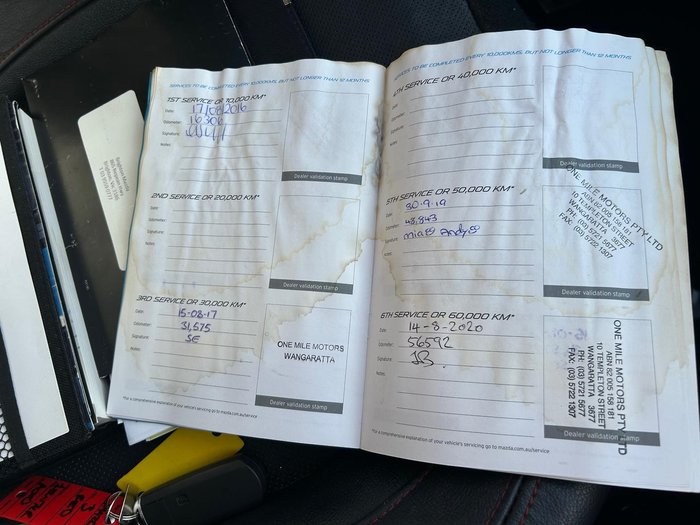 SERVICES TO BE COMPLETED EVERY 10,000KMS, BUT NOT LONGER THAN 12 MONTHS
1ST SERVICE OR 10,000 KM*
Date: 17/08/2016
Odometer: 16306
Signature:
Notes:
Dealer validation stamp
2ND SERVICE OR 20,000 KM*
Date:
Odometer:
Signature:
Notes:
Dealer validation stamp
3RD SERVICE OR 30,000 KM*
Date: 15-08-17
Odometer: 31,575
Signature: SE
Notes:
ONE MILE MOTORS
WANGARATTA
Dealer validation stamp
*For a comprehensive explanation of your vehicle's servicing go to mazda.com.au/service
SERVICES TO BE COMPLETED EVERY 10,000KMS, BUT NOT LONGER THAN 12 MONTHS
4TH SERVICE OR 40,000 KM*
Date:
Odometer:
Signature:
Notes:
Dealer validation stamp
5TH SERVICE OR 50,000 KM*
Date: 30-9-19
Odometer: 48,843
Signature: mia Andy
Notes:
ONE MILE MOTORS PTY LTD
ABN 82 005 158 181
10 TEMPLETON STREET
WANGARATTA 3677
PH: (03) 5721 5677
FAX: (03) 5722 1307
Dealer validation stamp
6TH SERVICE OR 60,000 KM*
Date: 14-8-2020
Odometer: 56592
Signature: JB.
Notes:
ONE MILE MOTORS PTY LTD
ABN 82 005 158 181
10 TEMPLETON STREET
WANGARATTA 3677
PH: (03) 5721 5677
FAX: (03) 5722 1307
Dealer validation stamp
*For a comprehensive explanation of your vehicle's servicing go to mazda.com.au/service
Brighton Mazda